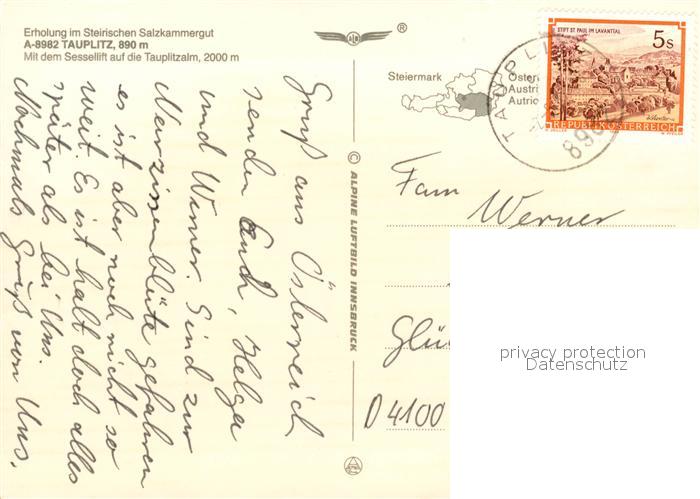 Erholung im Steirischen Salzkammergut
A-8982 TAUPLITZ, 890 m
Mit dem Sessellift auf die Tauplitzalm, 2000 m
®
Steiermark
Österr
Austri
Autric
STIFT ST. PAUL IM LAVANTTAL
5s
REPUBLIK ÖSTERREICH
TAUPLI
8982
© ALPINE LUFTBILD INNSBRUCK
Gruß aus Österreich
senden Euch, Helga
und Werner. Sind zur
Narzissenblüte gefahren
es ist aber noch nicht so
weit. Es ist halt doch alles
später als bei Uns.
Nochmals Gruß von Uns.
Fam Werner
Glü
D 4100
privacy protection
Datenschutz